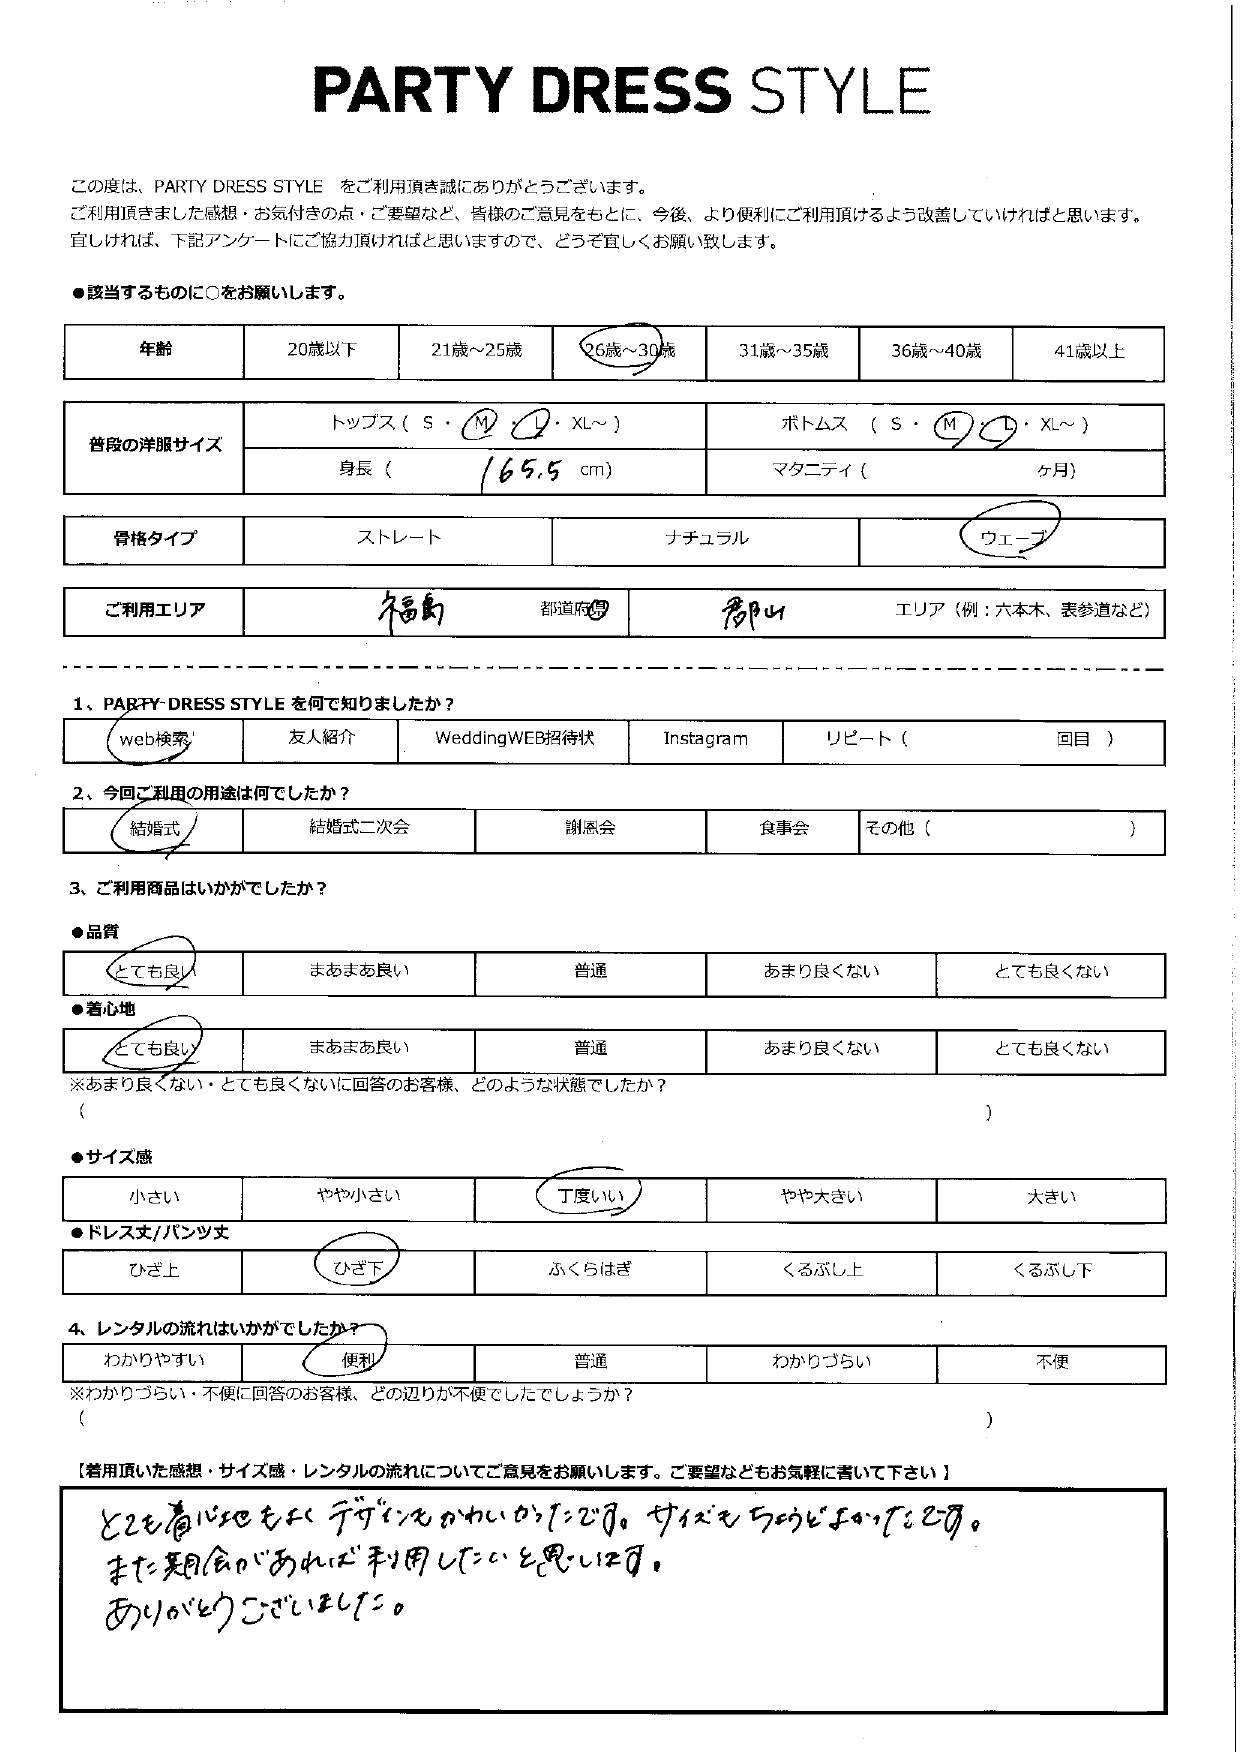 PARTY DRESS STYLE
この度は、PARTY DRESS STYLE をご利用頂き誠にありがとうございます。
ご利用頂きました感想・お気付きの点・ご要望など、皆様のご意見をもとに、今後、より便利にご利用頂けるよう改善していければと思います。
宜しければ、下記アンケートにご協力頂ければと思いますので、どうぞ宜しくお願い致します。
●該当するものに○をお願いします。
年齢 20歳以下 21歳～25歳 26歳～30歳 31歳～35歳 36歳～40歳 41歳以上
普段の洋服サイズ トップス ( S ・ M ・ L ・ XL～ ) ボトムス ( S ・ M ・ L ・ XL～ )
身長 ( 165.5 cm) マタニティ ( ヶ月)
骨格タイプ ストレート ナチュラル ウェーブ
ご利用エリア 福島 都道府県 郡山 エリア（例：六本木、表参道など）
1、PARTY DRESS STYLE を何で知りましたか？
web検索 友人紹介 WeddingWEB招待状 Instagram リピート ( 回目 )
2、今回ご利用の用途は何でしたか？
結婚式 結婚式二次会 謝恩会 食事会 その他 ( )
3、ご利用商品はいかがでしたか？
●品質
とても良い まあまあ良い 普通 あまり良くない とても良くない
●着心地
とても良い まあまあ良い 普通 あまり良くない とても良くない
※あまり良くない・とても良くないに回答のお客様、どのような状態でしたか？
( )
●サイズ感
小さい やや小さい 丁度いい やや大きい 大きい
●ドレス丈/パンツ丈
ひざ上 ひざ下 ふくらはぎ くるぶし上 くるぶし下
4、レンタルの流れはいかがでしたか？
わかりやすい 便利 普通 わかりづらい 不便
※わかりづらい・不便に回答のお客様、どの辺りが不便でしたでしょうか？
( )
【着用頂いた感想・サイズ感・レンタルの流れについてご意見をお願いします。ご要望などもお気軽に書いて下さい 】
とても着心地もよく デザインもかわいかったです。サイズもちょうどよかったです。
また機会があれば利用したいと思います。
ありがとうございました。